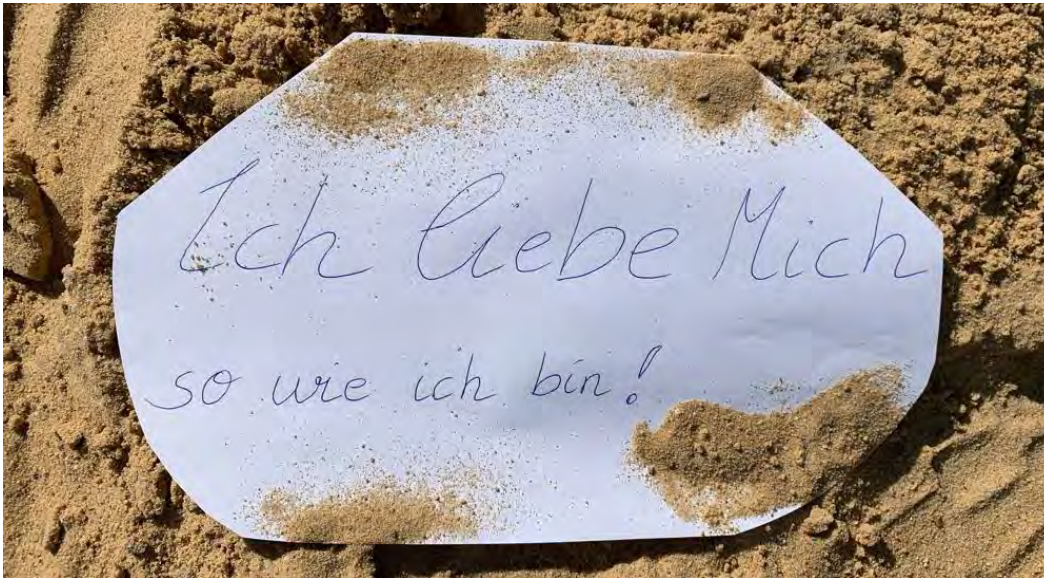 Ich liebe Mich
so wie ich bin!